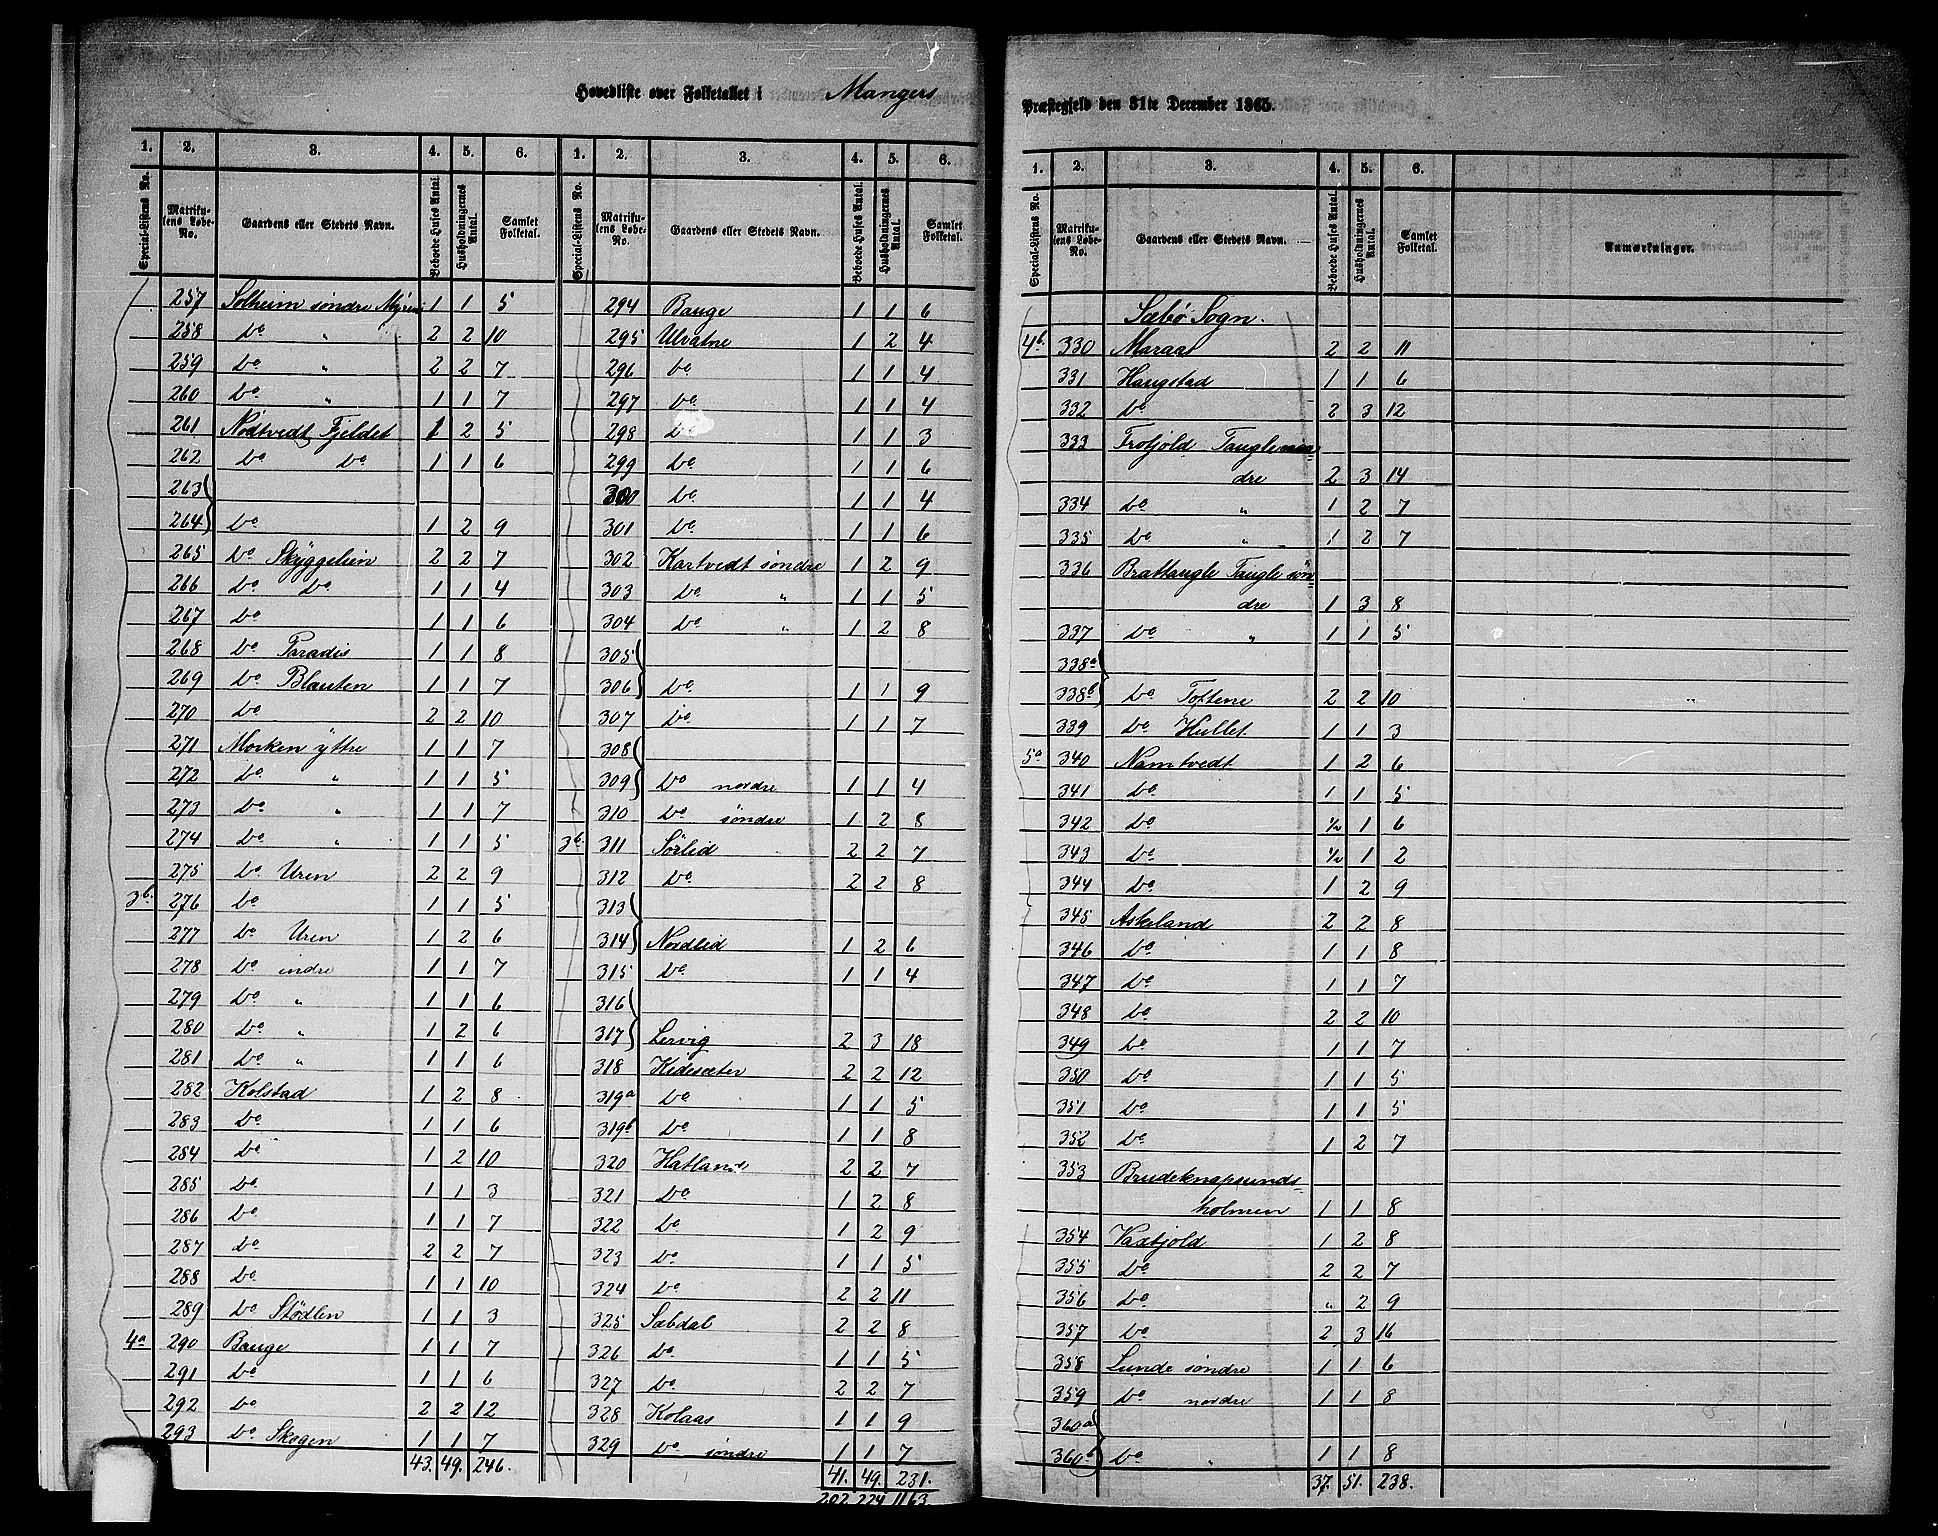 Hovedliste over Folketallet i Mangers Præstegjeld den 31te December 1865.
1. 2. 3. 4. 5. 6.
Special-Listens No. Matrikulens Løbe-No. Gaardens eller Stedets Navn. Beboede Huses Antal. Husholdningernes Antal. Samlet Folketal.
257 Solheim søndre Myren 1 1 5
258 Do " 2 2 10
259 Do " 2 2 7
260 Do " 1 1 7
261 Nödtvedt Fjeldet 1 2 5
262 Do Do 1 1 6
263
264 Do 1 2 9
265 Do Skÿggelien 2 2 7
266 Do Do 1 1 4
267 Do 1 1 6
268 Do Paradis 1 1 8
269 Do Blauten 1 1 7
270 Do 2 2 10
271 Morken ÿttre 1 1 7
272 Do " 1 1 5
273 Do " 1 1 7
274 Do " 1 1 5
275 Do Uren 2 2 9
3b. 276 Do 1 1 5
277 Do Uren 1 2 6
278 Do indre 1 1 7
279 Do " 1 1 6
280 Do " 1 2 6
281 Do " 1 1 6
282 Kolstad 1 2 8
283 Do 1 1 6
284 Do 1 2 10
285 Do 1 1 3
286 Do 1 1 7
287 Do 2 2 7
288 Do 1 1 10
289 Do Stödlen 1 1 3
4a 290 Bauge 1 1 7
291 Do 1 1 6
292 Do 2 2 12
293 Do Skogen 1 1 7
43. 49. 246.
1. 2. 3. 4. 5. 6.
Special-Listens No. Matrikulens Løbe-No. Gaardens eller Stedets Navn. Beboede Huses Antal. Husholdningernes Antal. Samlet Folketal.
294 Bauge 1 1 6
295 Ulvatne 1 2 4
296 Do 1 1 4
297 Do 1 1 4
298 Do 1 1 3
299 Do 1 1 6
300 Do 1 1 4
301 Do 1 1 6
302 Kartvedt søndre 1 2 9
303 Do " 1 1 5
304 Do " 1 2 8
305
306 Do 1 1 9
307 Do 1 1 7
308
309 Do nordre 1 1 4
310 Do søndre 1 2 8
3b. 311 Sörlid 2 2 7
312 Do 2 2 8
313
314 Nordlid 1 2 6
315 Do 1 1 4
316
317 Lervig 2 3 18
318 Kidesæter 2 2 12
319a Do 1 1 5
319b Do 1 1 8
320 Hatland 2 2 7
321 Do 1 2 8
322 Do 1 2 9
323 Do 1 1 5
324 Do 2 2 11
325 Sæbdal 2 2 8
326 Do 1 1 5
327 Do 2 2 7
328 Kolaas 1 1 9
329 Do søndre 1 1 7
41. 49. 231.
202. 224. 1163.
1. 2. 3. 4. 5. 6.
Special-Listens No. Matrikulens Løbe-No. Gaardens eller Stedets Navn. Beboede Huses Antal. Husholdningernes Antal. Samlet Folketal. Anmærkninger.
Sæbø Sogn.
4b. 330 Maraas 2 2 11
331 Haugstad 1 1 6
332 Do 2 3 12
333 Trofjold
dre 2 3 14
334 Do " 1 2 7
335 Do " 1 2 7
336 Brattaugle Taugle søn
dre 1 3 8
337 Do " 1 1 5
338a
338b Do Toftene 2 2 10
339 Do Hullet 1 1 3
5a 340 Namtvedt 1 2 6
341 Do 1 1 5
342 Do ½ 1 6
343 Do ½ 1 2
344 Do 1 2 9
345 Askeland 2 2 8
346 Do 1 1 8
347 Do 1 1 7
348 Do 2 2 10
349 Do 1 1 7
350 Do 1 1 5
351 Do 1 1 5
352 Do 1 2 7
353 Brudeknapsunds-
holmen 1 1 8
354 Vaxtjold 1 2 8
355 Do 2 2 7
356 Do " 2 9
357 Do 2 3 16
358 Lunde søndre 1 1 6
359 Do nordre 1 1 8
360a
360b Do " 1 1 8
37. 51. 238.